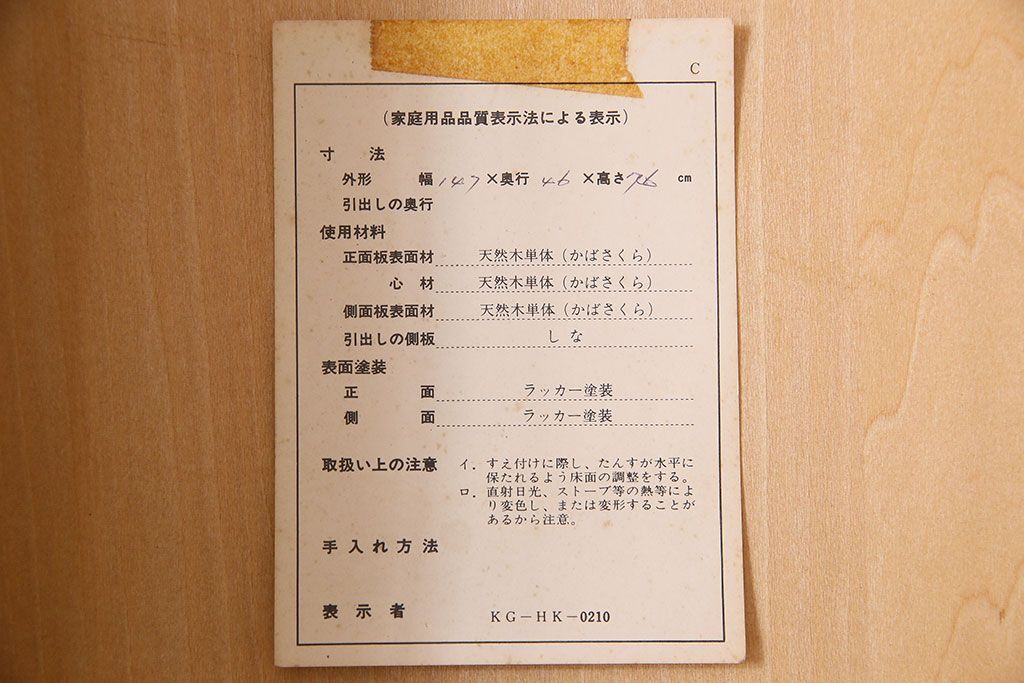 C
（家庭用品品質表示法による表示）
寸法
外形 幅147×奥行46×高さ76cm
引出しの奥行
使用材料
正面板表面材 天然木単体（かばさくら）
心材 天然木単体（かばさくら）
側面板表面材 天然木単体（かばさくら）
引出しの側板 しな
表面塗装
正面 ラッカー塗装
側面 ラッカー塗装
取扱い上の注意 イ．すえ付けに際し、たんすが水平に
保たれるよう床面の調整をする。
ロ．直射日光、ストーブ等の熱等によ
り変色し、または変形することが
あるから注意。
手入れ方法
表示者 KG－HK－0210